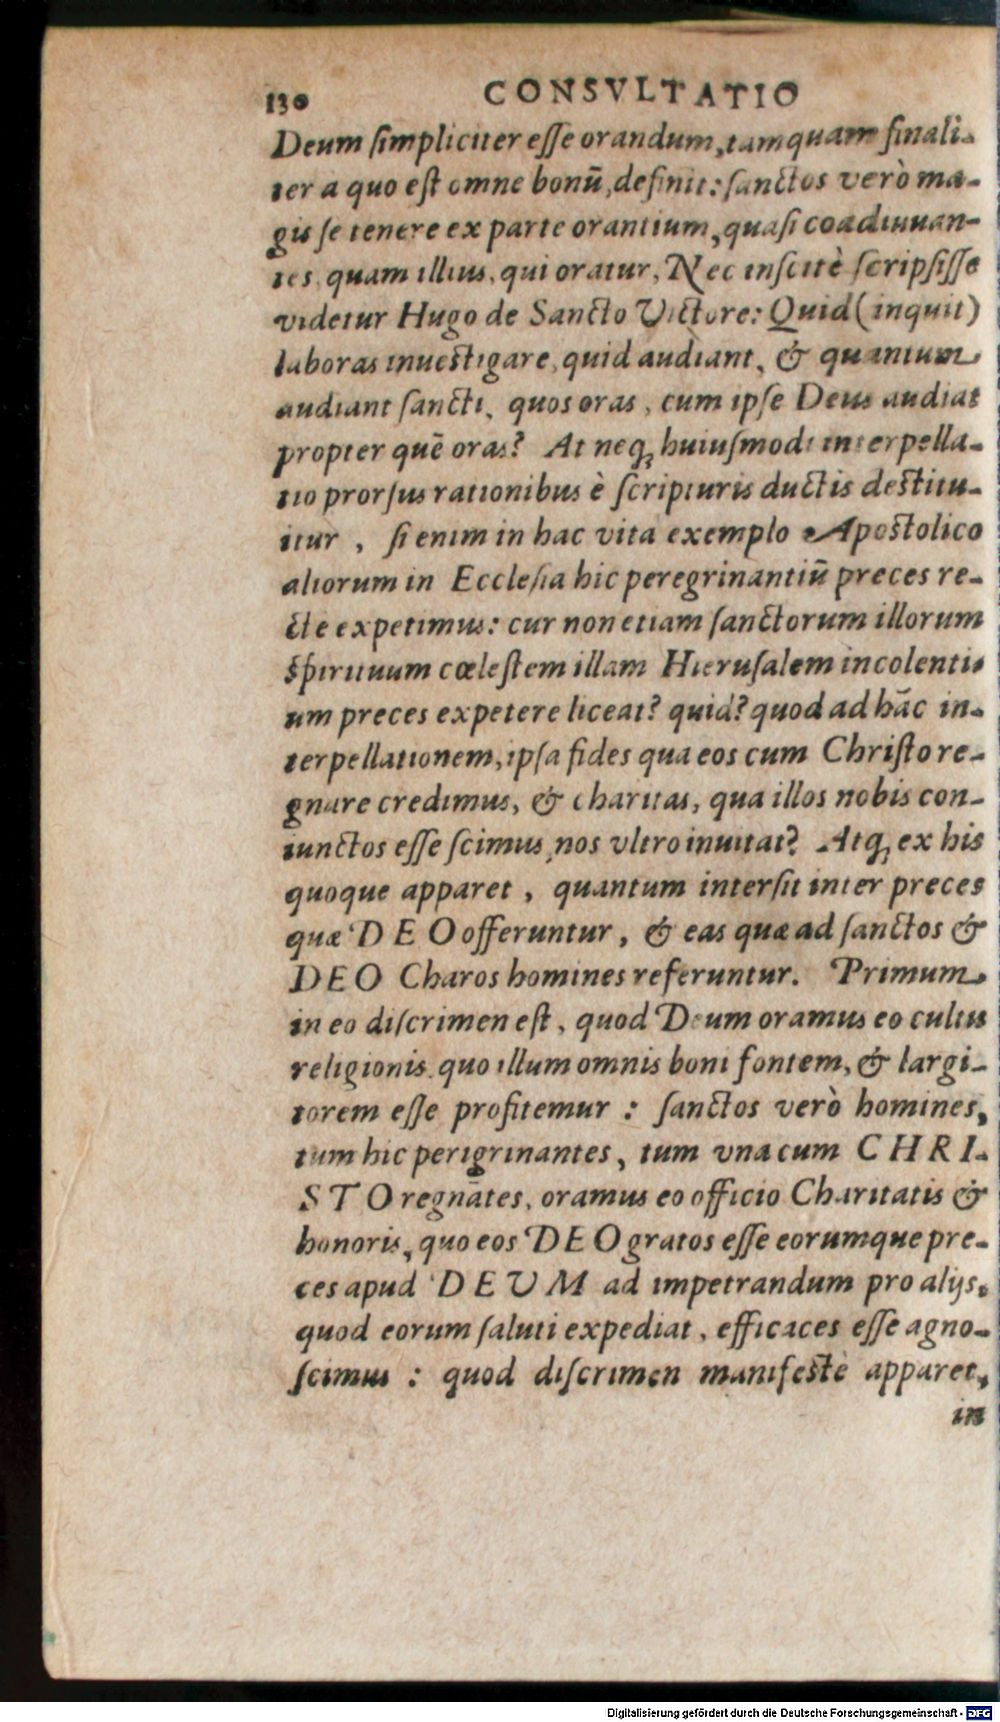 130 CONSVLTATIO
Deum ſimpliciter eſſe orandum, tamquam finali-
ter a quo eſt omne bonū, definit: ſanctos verò ma-
gis ſe tenere ex parte orantium, quaſi coadiuuan-
tes, quam illius, qui oratur, Nec inſcitè ſcripſiſſe
videtur Hugo de Sancto Victore: Quid (inquit)
laboras inueſtigare, quid audiant, & quantum
audiant ſancti, quos oras, cum ipſe Deus audiat
propter quē oras? At neq; huiuſmodi interpella-
tio prorſus rationibus è ſcripturis ductis deſtitu-
itur, ſi enim in hac vita exemplo Apoſtolico
aliorum in Eccleſia hic peregrinantiū preces re-
cte expetimus: cur non etiam ſanctorum illorum
ſpirituum cœleſtem illam Hieruſalem incolenti-
um preces expetere liceat? quid? quod ad hāc in-
terpellationem, ipſa fides qua eos cum Chriſto re-
gnare credimus, & charitas, qua illos nobis con-
iunctos eſſe ſcimus, nos vltro inuitat? Atq; ex his
quoque apparet, quantum interſit inter preces
quæ DEO offeruntur, & eas quæ ad ſanctos &
DEO Charos homines referuntur. Primum
in eo diſcrimen eſt, quod Deum oramus eo cultu
religionis, quo illum omnis boni fontem, & largi-
torem eſſe profitemur: ſanctos verò homines,
tum hic perigrinantes, tum vna cum CHRI-
STO regnātes, oramus eo officio Charitatis &
honoris, quo eos DEO gratos eſſe eorumque pre-
ces apud DEUM ad impetrandum pro alijs,
quod eorum ſaluti expediat, efficaces eſſe agno-
ſcimus: quod diſcrimen manifeſtè apparet,
in
Digitalisierung gefördert durch die Deutsche Forschungsgemeinschaft - DFG